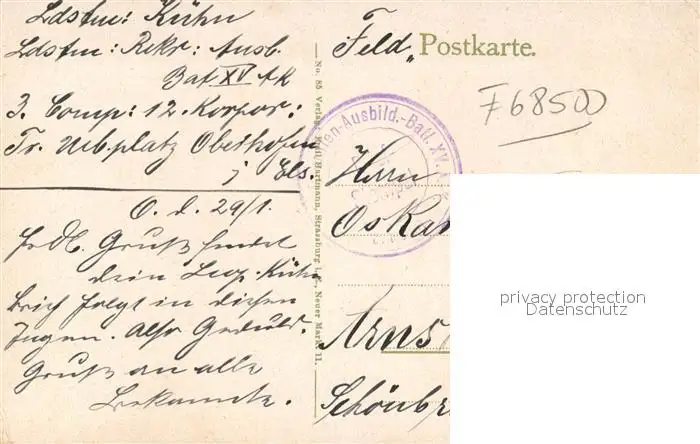 Ldstm: Kühn
Ldstm: Rekr: Ausb.
Bat XV AK
3. Comp: 12. Korpor:
Tr. Übplatz Oberhofen
i/ Els.
O. d. 29/1.
Frdl. Gruß sendet
dein Leop. Kühn
Brief folgt in diesen
Tagen. Also Geduld.
Gruß an alle
Bekannte.
No. 85 Verlag Emil Hartmann, Strassburg i. E., Neuer Markt 11.
Feld Postkarte.
F68500
-Ausbild.-Batl. XV.
Herrn
Oskar
Arns
Schönbr
privacy protection
Datenschutz